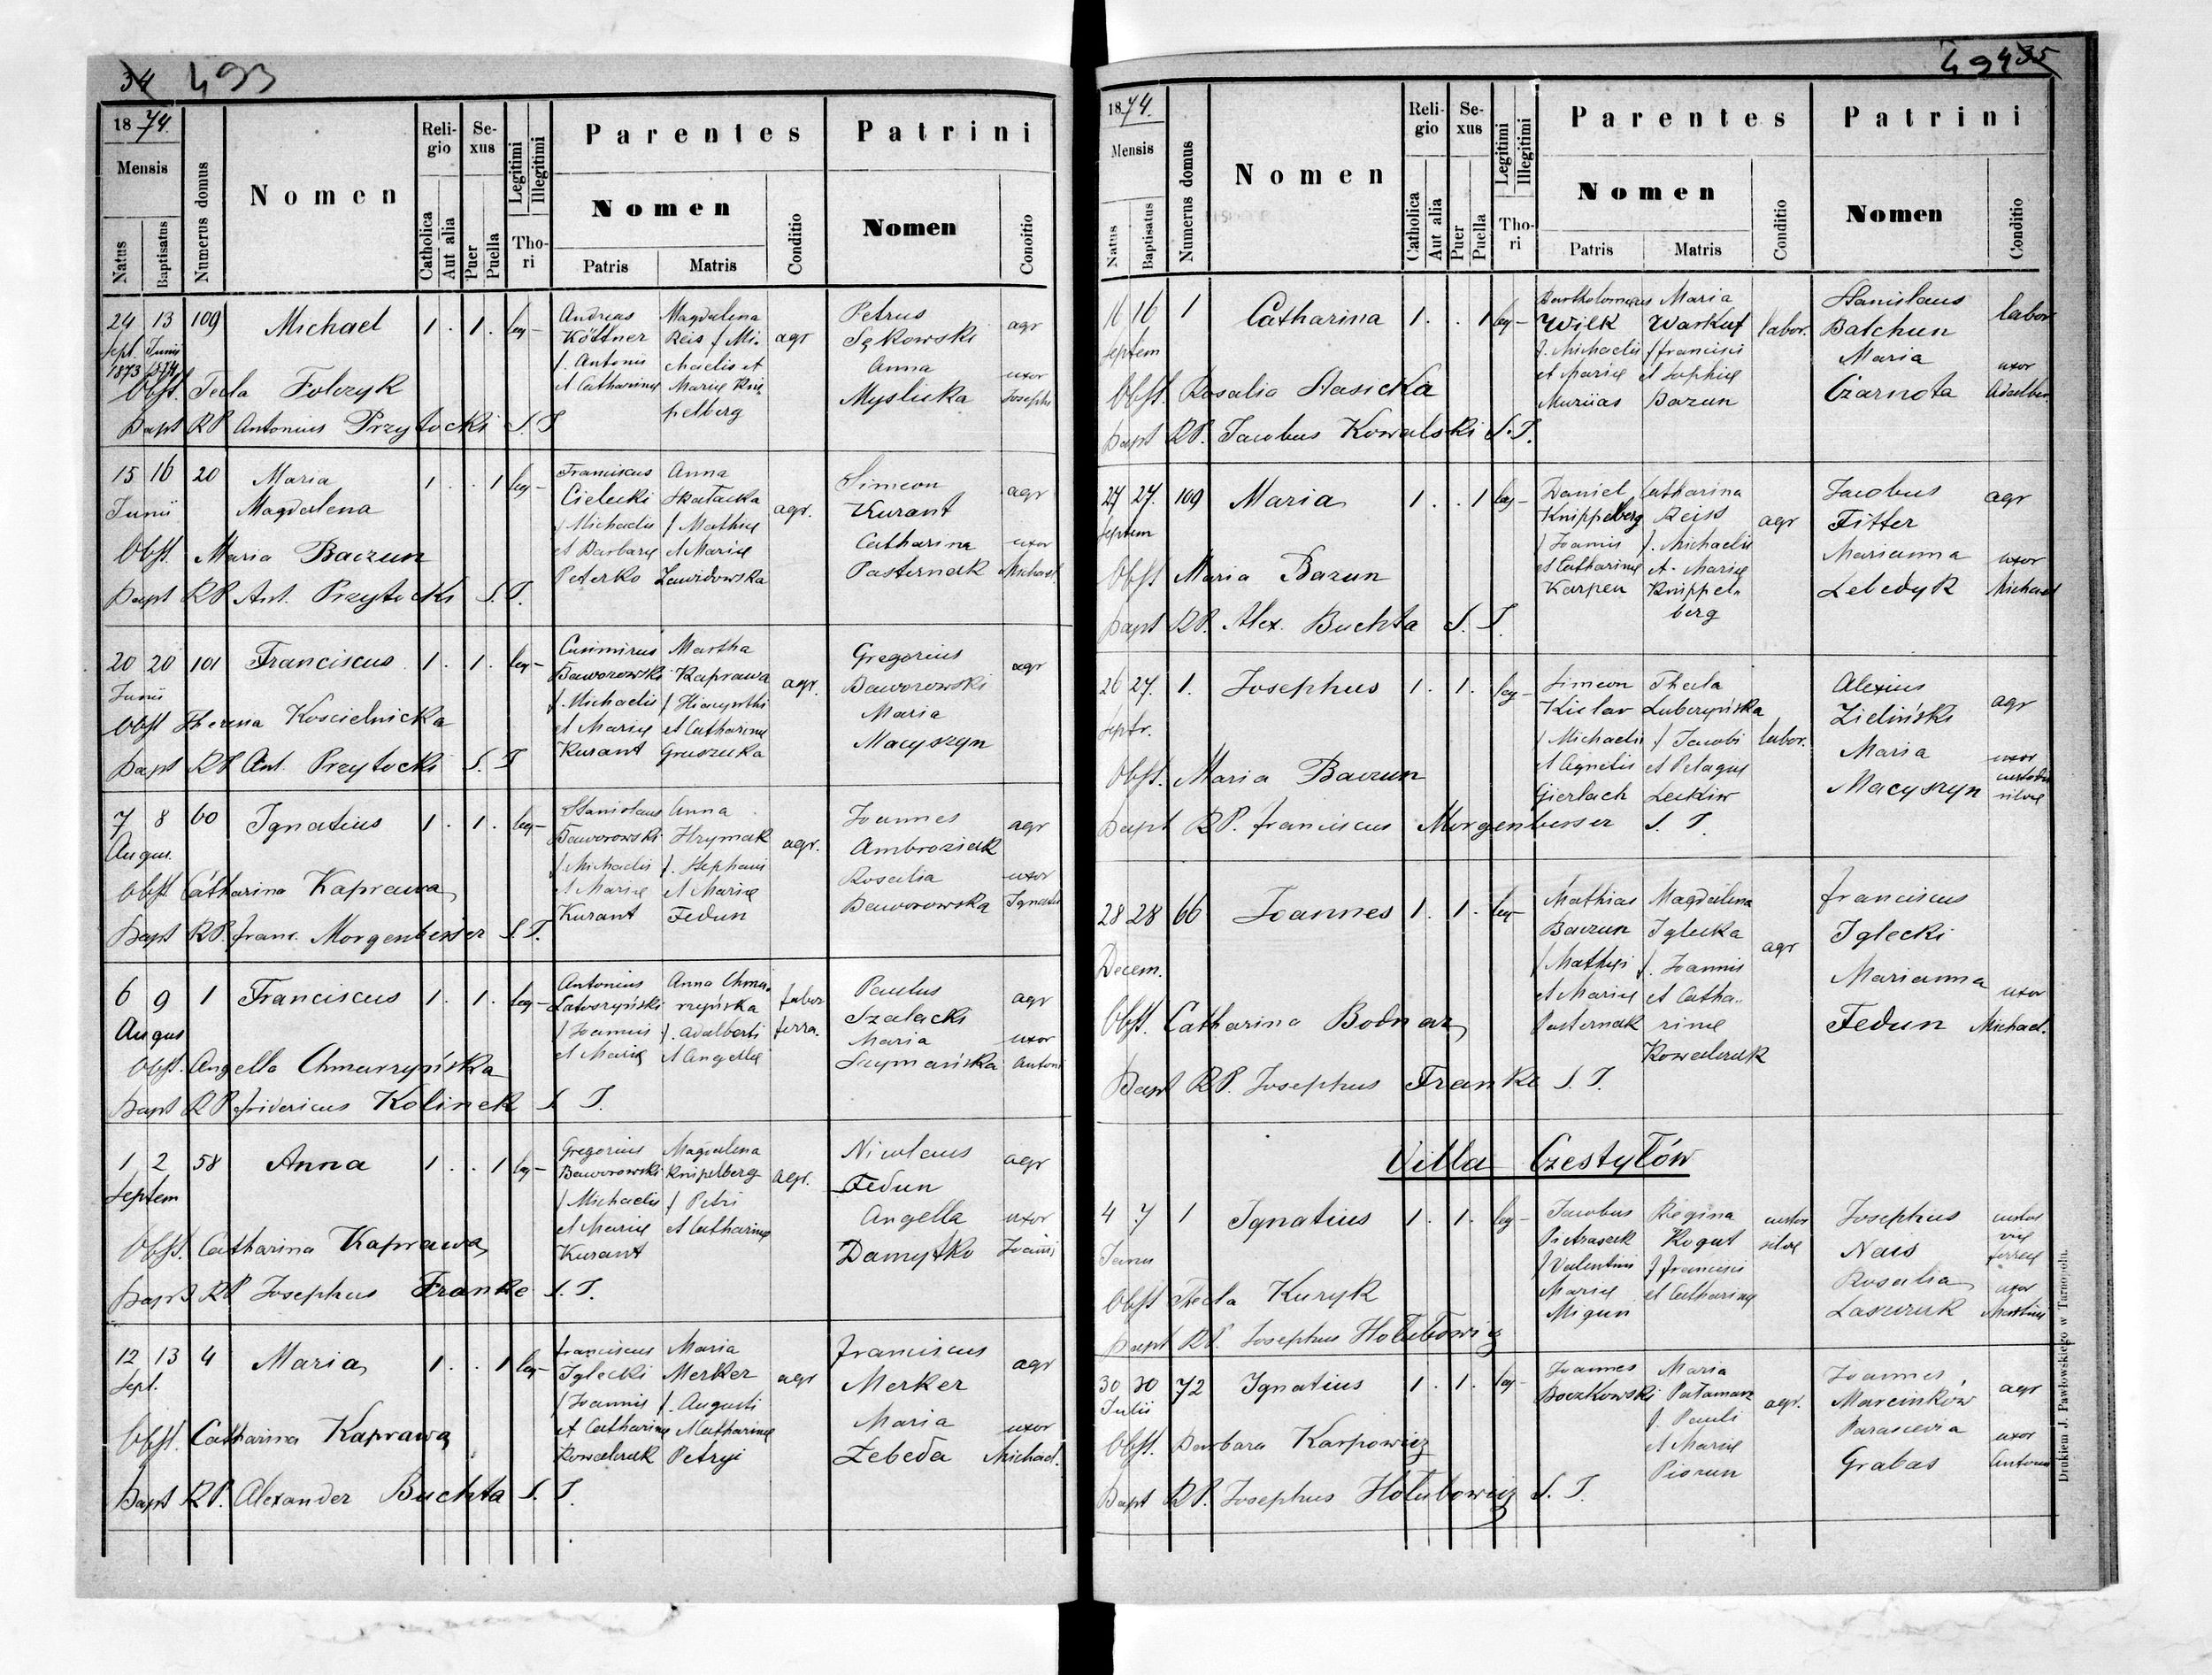 34 493
18 74.
Mensis
Natus
Baptisatus
Numerus domus
Nomen
Religio
Catholica
Aut alia
Sexus
Puer
Puella
Legitimi
Illegitimi
Thori
Parentes
Nomen
Patris
Matris
Conditio
Patrini
Nomen
Conditio
24 13 109 Michael 1. 1. leg-
Sept. Junii
1873 1874
Andreas
Köttner
f. Antonii
et Catharinæ
Magdalena
Reis f Mi-
chaelis et
Mariæ Kni-
pelberg
agr
Petrus agr
Sękowski
Anna uxor
Myslicka Josephi
Obst. Tecla Folczyk
Bapt RP Antonius Przytocki S. T
15 16 20 Maria 1. . 1 leg-
Junii Magdalena
Franciscus
Cielecki
f Michaelis
et Barbaræ
Peterko
Anna
Skałacka
f Mathiæ
et Mariæ
Zawidowska
agr.
Simeon agr
Kurant
Catharina uxor
Pasternak Michael.
Obst. Maria Baczun
Bapt RP Ant. Przytocki S. T.
20 20 101 Franciscus 1. 1. leg-
Junii
Casimirus
Baworowski
f. Michaelis
et Mariæ
Kurant
Martha
Kaprawa
f Hiacynthi
et Catharinæ
Gruszecka
agr.
Gregorius agr
Baworowski
Maria
Macyszyn
Obst Theresa Koscielnicka
Bapt RP Ant. Przytocki S. T
7 8 60 Ignatius 1. 1. leg-
Augus.
Stanislaus
Baworowski
f Michaelis
et Mariæ
Kurant
Anna
Hrymak
f. Stephani
et Mariæ
Fedun
agr.
Joannes agr
Ambroziak
Rosalia uxor
Baworowska Ignatii
Obst. Catharina Kaprawa
Bapt RP. franc. Morgenbesser S. T.
6 9 1 Franciscus 1. 1. leg-
Augus
Antonius
Latoszyński
f Joannis
et Mariæ
Anna Chma-
rzyńska
f. Adalberti
et Angellæ
Paulus agr
Szalacki
Maria uxor
Szymańska Antoni
Obst. Angella Chmarzyńska
Bapt RP fridericus Kolinek S T.
1 2 58 Anna 1. . 1 leg-
Septem
Gregorius
Baworowski
f Michaelis
et Mariæ
Kurant
Magdalena
Knipelberg
f Petri
et Catharinæ
agr.
Nicolaus agr
Fedun
Angella uxor
Damytko Joanis
Obst. Catharina Kaprawa
Bapt RP Josephus Franke S. T.
12 13 4 Maria 1. . 1 leg-
Sept.
franciscus
Iglecki
f Joannis
et Catharinæ
Kowalczuk
Maria
Merker
f. Augusti
et Catharinæ
Petryi
agr
franciscus agr
Merker
Maria uxor
Lebeda Michael.
Obst. Catharina Kaprawa
Bapt RP. Alexander Buchta S. T.
494 35
18 74.
Mensis
Natus
Baptisatus
Numerus domus
Nomen
Religio
Catholica
Aut alia
Sexus
Puer
Puella
Legitimi
Illegitimi
Thori
Parentes
Nomen
Patris
Matris
Conditio
Patrini
Nomen
Conditio
16 16 1 Catharina 1. . 1 leg-
Septem
Bartholomæus
Wilk
f. Michaelis
et Mariæ
Maria
Warkut
f francisci
et Sophiæ
Bazun
labor.
Stanislaus labor
Batchun
Maria uxor
Czarnota Adalber.
Obst. Rosalia Stasicka
Bapt RP. Jacobus Kowalski S. T.
27 27. 109 Maria 1. . 1 leg-
Septem
Daniel
Knippelberg
f Joannis
et Catharinæ
Karpen
Catharina
Reiss
f. Michaelis
et Mariæ
Knippel-
berg
agr
Jacobus agr
Fitter
Marianna uxor
Lebedyk Michael
Obst Maria Bazun
Bapt RP. Alex. Buchta S. T.
26 27. 1. Josephus 1. 1. leg-
Septr.
Simeon
Kielar
f Michaelis
et Agnetis
Gierlach
Thecla
Lubczyńska
f Jacobi
et Pelagiæ
Leckiw
labor.
Alexius agr
Zieliński
Maria uxor
Macyszyn custodis silvæ
Obst. Maria Baczun
Bapt RP. franciscus Morgenbesser S. T.
28 28 66 Joannes 1. 1. leg-
Decem.
Mathias
Baczun
f Mathæi
et Mariæ
Pasternak
Magdalena
Iglecka
f. Joannis
et Catha-
rinæ
Kowalczuk
agr
franciscus
Iglecki
Marianna uxor
Fedun Michael.
Obst. Catharina Bodnar
Bapt RP. Josephus Franke S. T.
Villa Czestyłów
4 7 1 Ignatius 1. 1. leg-
Janu
Jacobus
Pietraszek
f Valentini
Mariæ
Migun
Regina
Kogut
f francisci
et Catharinæ
custos silvæ
Josephus custos
Nais viæ ferreæ
Rosalia uxor
Laszczuk Martini
Obst Thecla Kuryk
Bapt RP. Josephus Hołubowicz
30 30 72 Ignatius 1. 1. leg-
Julii
Joannes
Boczkowski
Maria
Pałamarz
f. Pauli
et Mariæ
Piorun
agr.
Joannes agr
Marcinków
Parascevia uxor
Grabas Antonii
Obst. Barbara Karpowicz
Bapt RP. Josephus Hołubowicz S. T.
Drukiem J. Pawłowskiego w Tarnopolu.